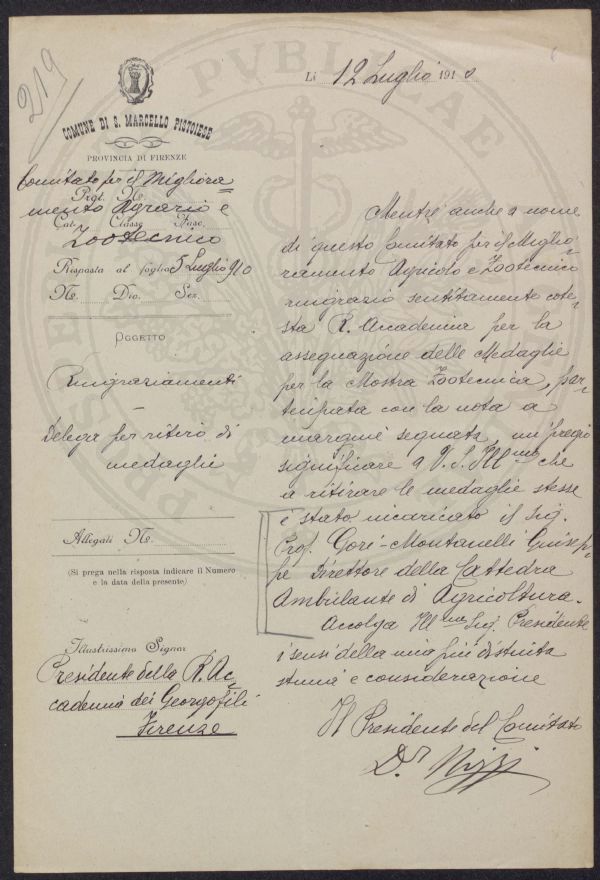 219
COMUNE DI S. MARCELLO PISTOIESE
PROVINCIA DI FIRENZE
Comitato per il Migliora=
Prot. No
mento Agrario e
Cat. Classe Fasc.
Zootecnico
Risposta al foglio 5 Luglio 910
No. Div. Sez.
OGGETTO
Ringraziamenti
-
Delega per ritiro di
medaglie
Allegati No.
(Si prega nella risposta indicare il Numero
e la data della presente)
Illustrissimo Signor
Presidente della R. Ac=
cademia dei Georgofili
Firenze
Li 12 Luglio 1910
Mentre anche a nome
di questo Comitato per il Miglio=
ramento Agricolo e Zootecnico
ringrazio sentitamente cote=
sta R. Accademia per la
assegnazione delle Medaglie
per la Mostra Zootecnica, par=
tecipata con la nota a
margine segnata, mi pregio
significare a V. S. Ill.ma che
a ritirare le medaglie stesse
è stato incaricato il Sig.
Prof. Gori-Montanelli Giusep=
pe Direttore della Cattedra
Ambulante di Agricoltura.
Accolga Ill.mo Sig. Presidente
i sensi della mia più distinta
stima e considerazione
Il Presidente del Comitato
D.r
PVBLICAE